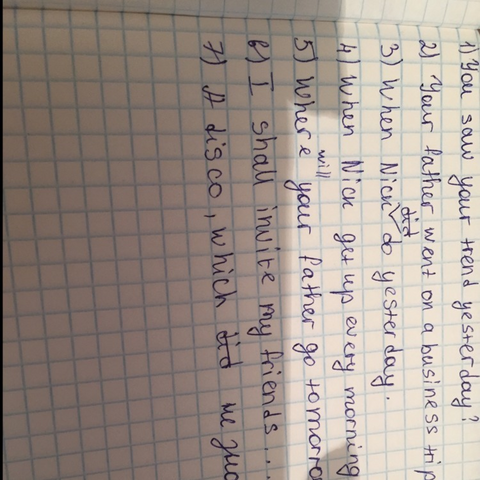 1) You saw your frend yesterday?
2) Your father went on a business trip
3) When Nick did do yesterday.
4) When Nick get up every morning
5) Where will your father go tomorro
6) I shall invite my friends...
7) A disco, which did we